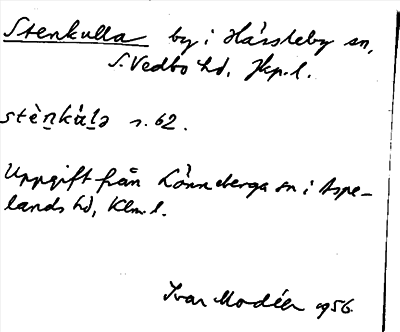 Stenkulla by i Hässleby sn,
S. Vedbo hd, Jkp. l.
stèn̲kál̲ə s. 62.
Uppgift från Lönneberga sn i Aspe-
lands hd, Klm. l.
Ivar Modéer 1956.